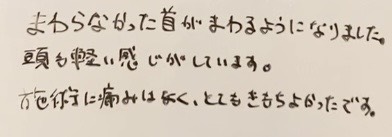 まわらなかった首がまわるようになりました。
頭も軽い感じがしています。
施術に痛みはなく、とてもきもちよかったです。